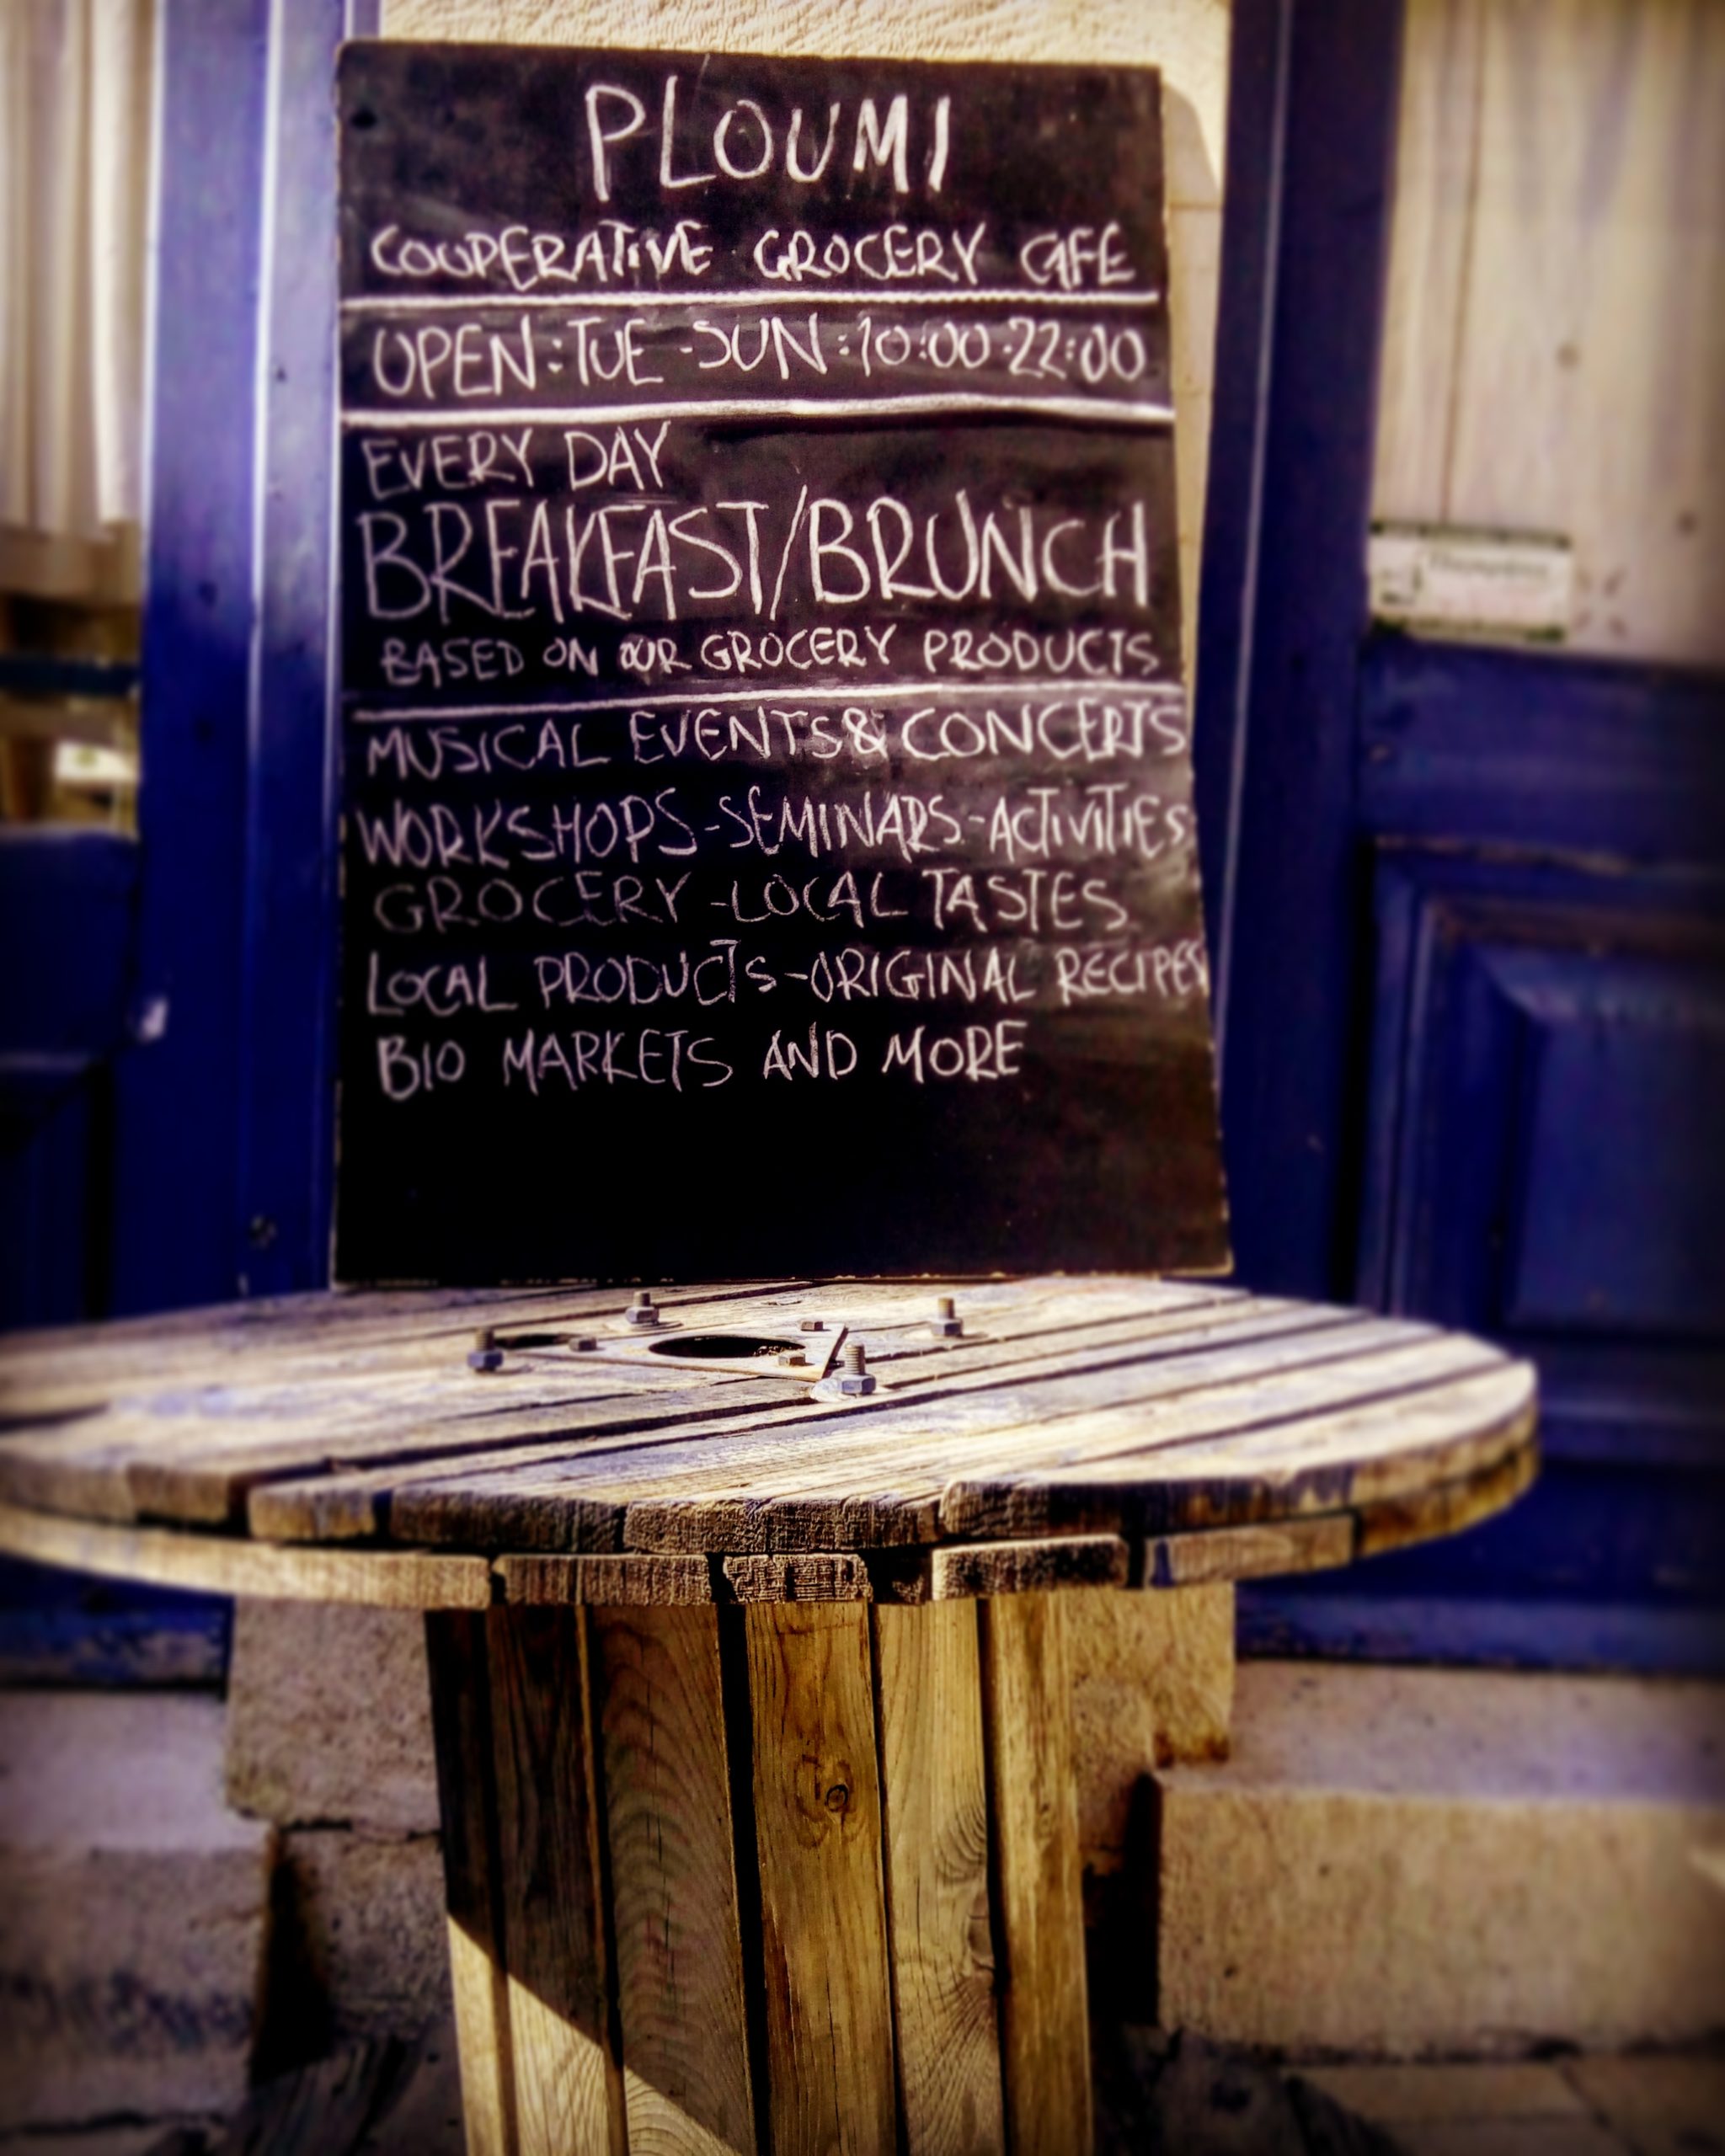 PLOUMI
COOPERATIVE GROCERY CAFE
OPEN:TUE-SUN:10:00-22:00
EVERY DAY
BREAKFAST/BRUNCH
BASED ON OUR GROCERY PRODUCTS
MUSICAL EVENTS & CONCERTS
WORKSHOPS-SEMINARS-ACTIVITIES
GROCERY-LOCAL TASTES
LOCAL PRODUCTS-ORIGINAL RECIPES
BIO MARKETS AND MORE